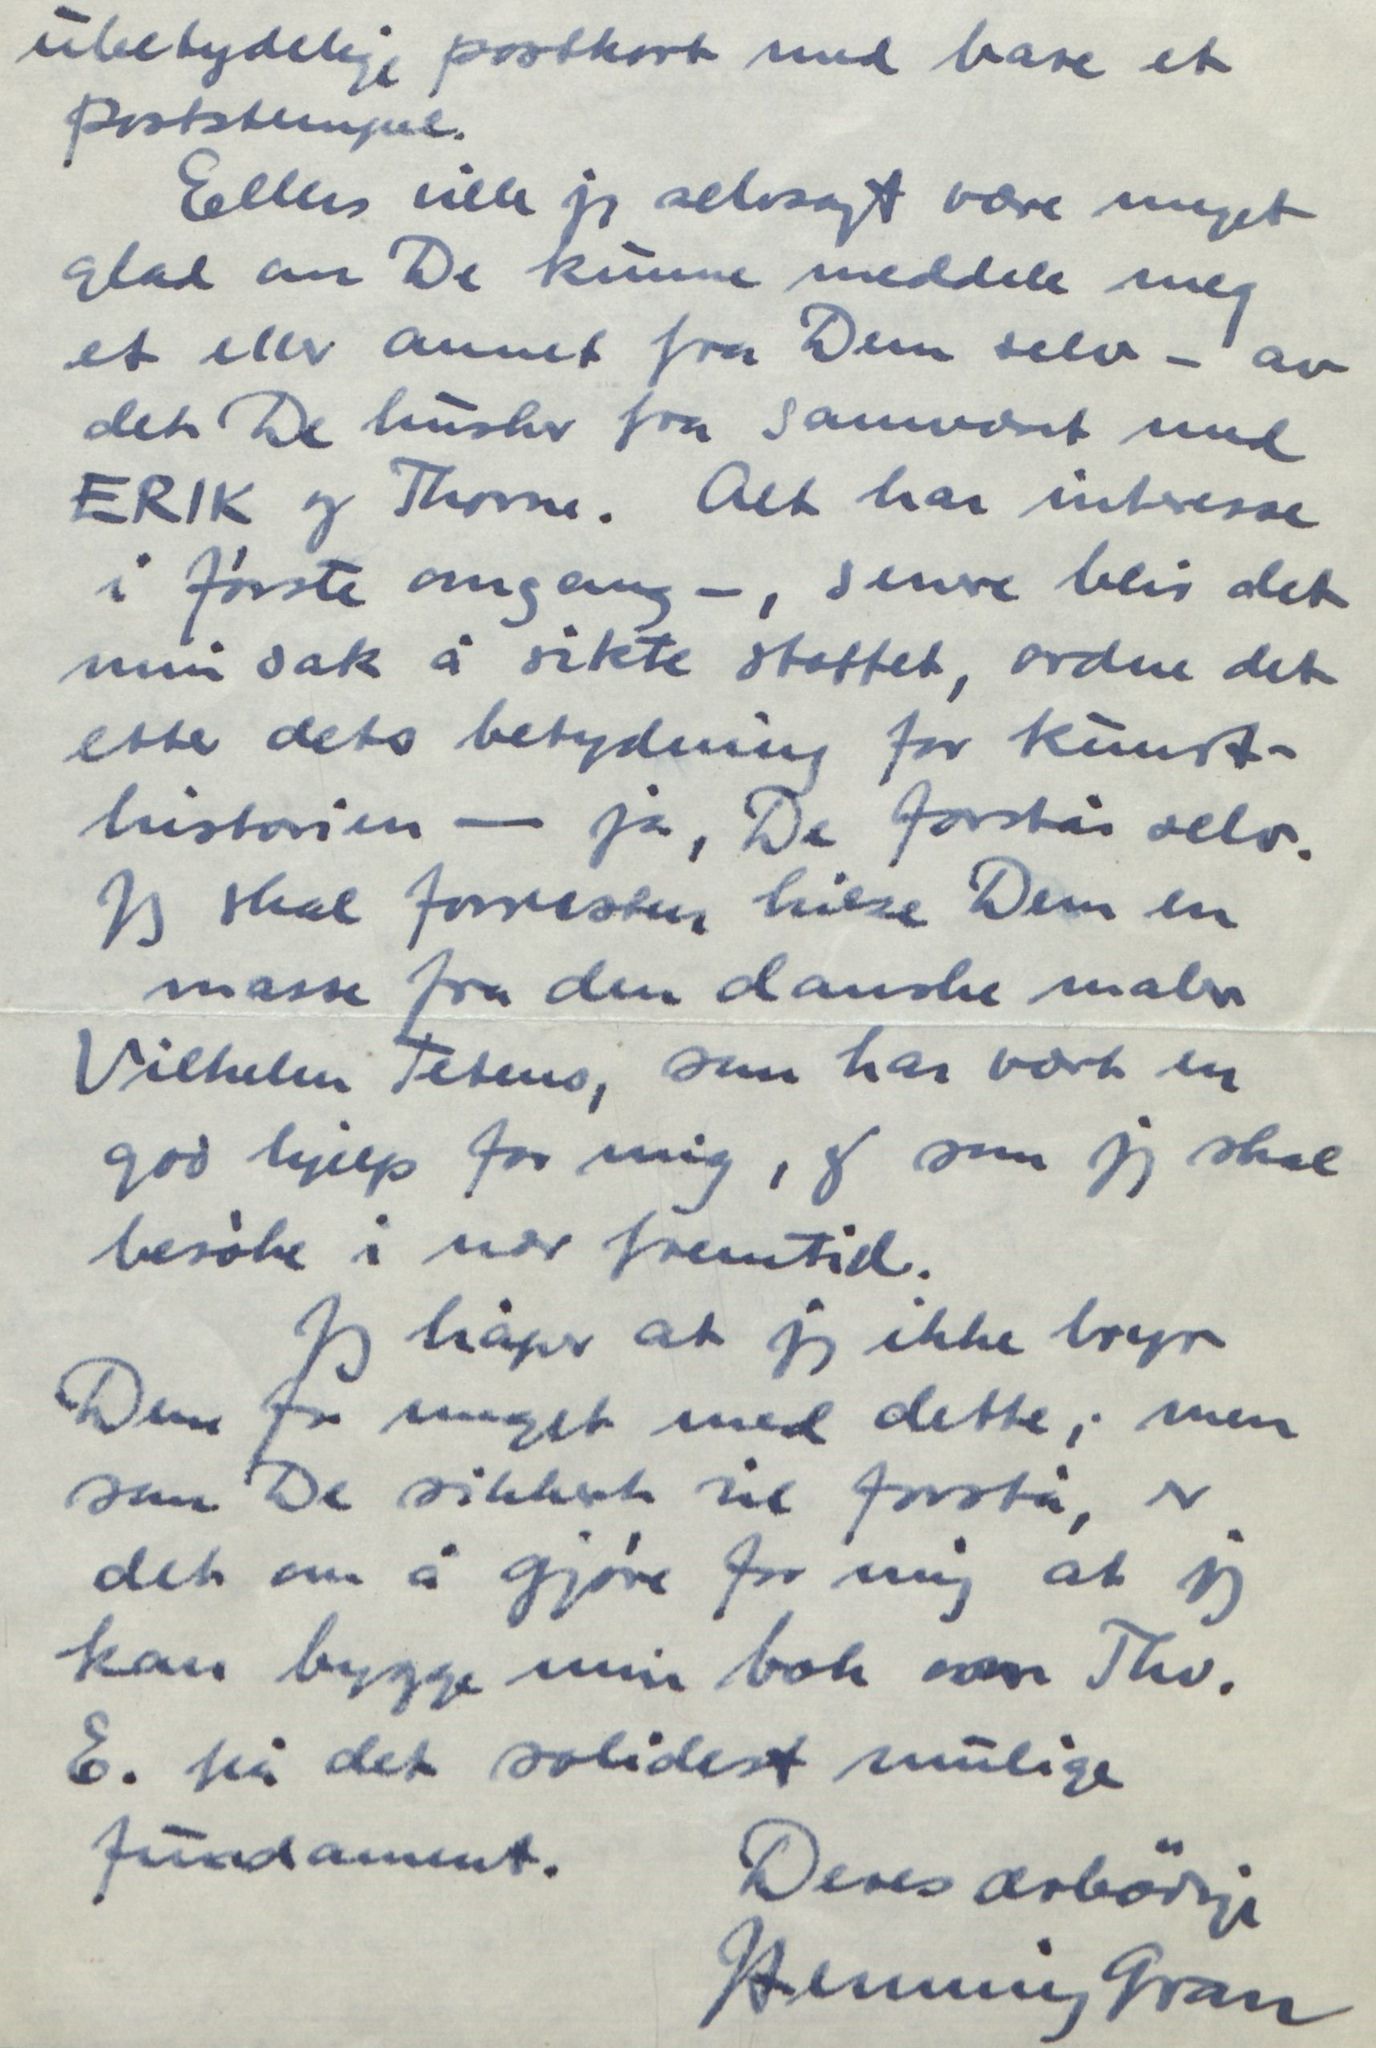 ubetydelige postkort med bare et
poststempel.
Ellers ville jg selvsagt være meget
glad om De kunne meddele meg
et eller annet fra Dem selv - av
det De husker fra samværet med
ERIK og Thorne. Alt har interesse
i första omgang -, senere blir det
min sak å sikte stoffet, ordne det
etter dets betydning for kunst-
historien — ja, De forstår selv.
Jg skal forresten hilse Dem en
masse fra den danske maler
Vilhelm Tetens, som har vært en
god hjelp for mig, og som jg skal
besøke i nær fremtid.
Jg håper at jg ikke bryr
Dem for meget med dette; men
som De sikkert vil forstå, er
det om å gjøre for mig at jg
kan bygge min bok om Thv.
E. på det solidest mulige
fundament.
Deres ærbödige
Henning Gran